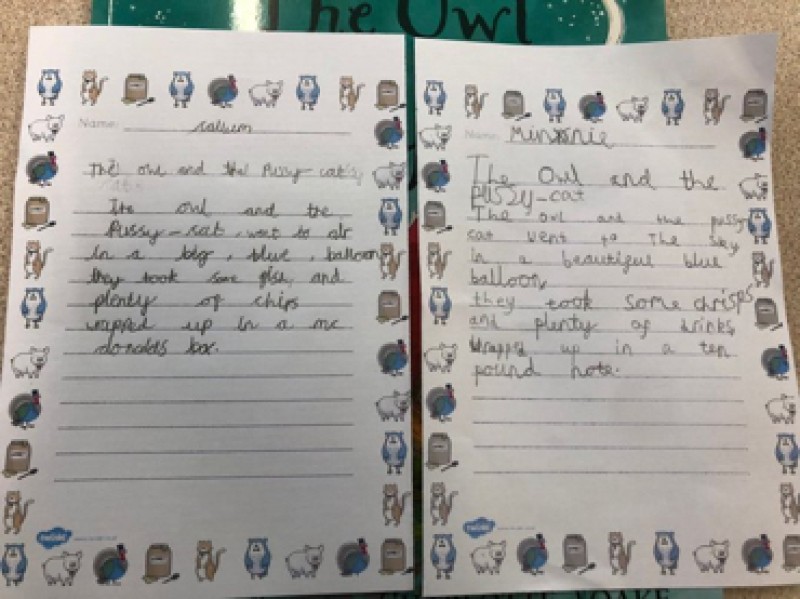 The Owl
Name: Callum
The owl and the Pussy-cat
The owl and the
Pussy-cat, went to air
in a big, blue, balloon
they took some fish, and
plenty of chips
wrapped up in a mc
donalds box.
twinkl
Name: Minnie
The Owl and the
Pussy-cat
The owl and the pussy
cat went to The Sky
in a beautiful blue
balloon,
they took some chrisps
and plenty of drinks
Wrapped up in a ten
pound note.
twinkl